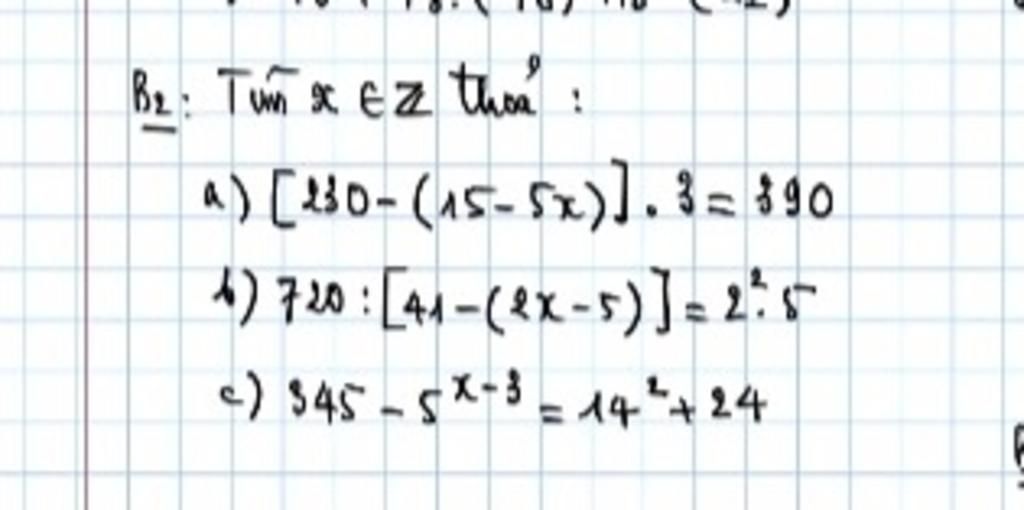 B2: Tìm x ∈ Z thoả :
a) [230 - (15 - 5x)] . 3 = 390
b) 720 : [41 - (2x - 5)] = 2² . 5
c) 345 - 5ˣ⁻³ = 14² + 24